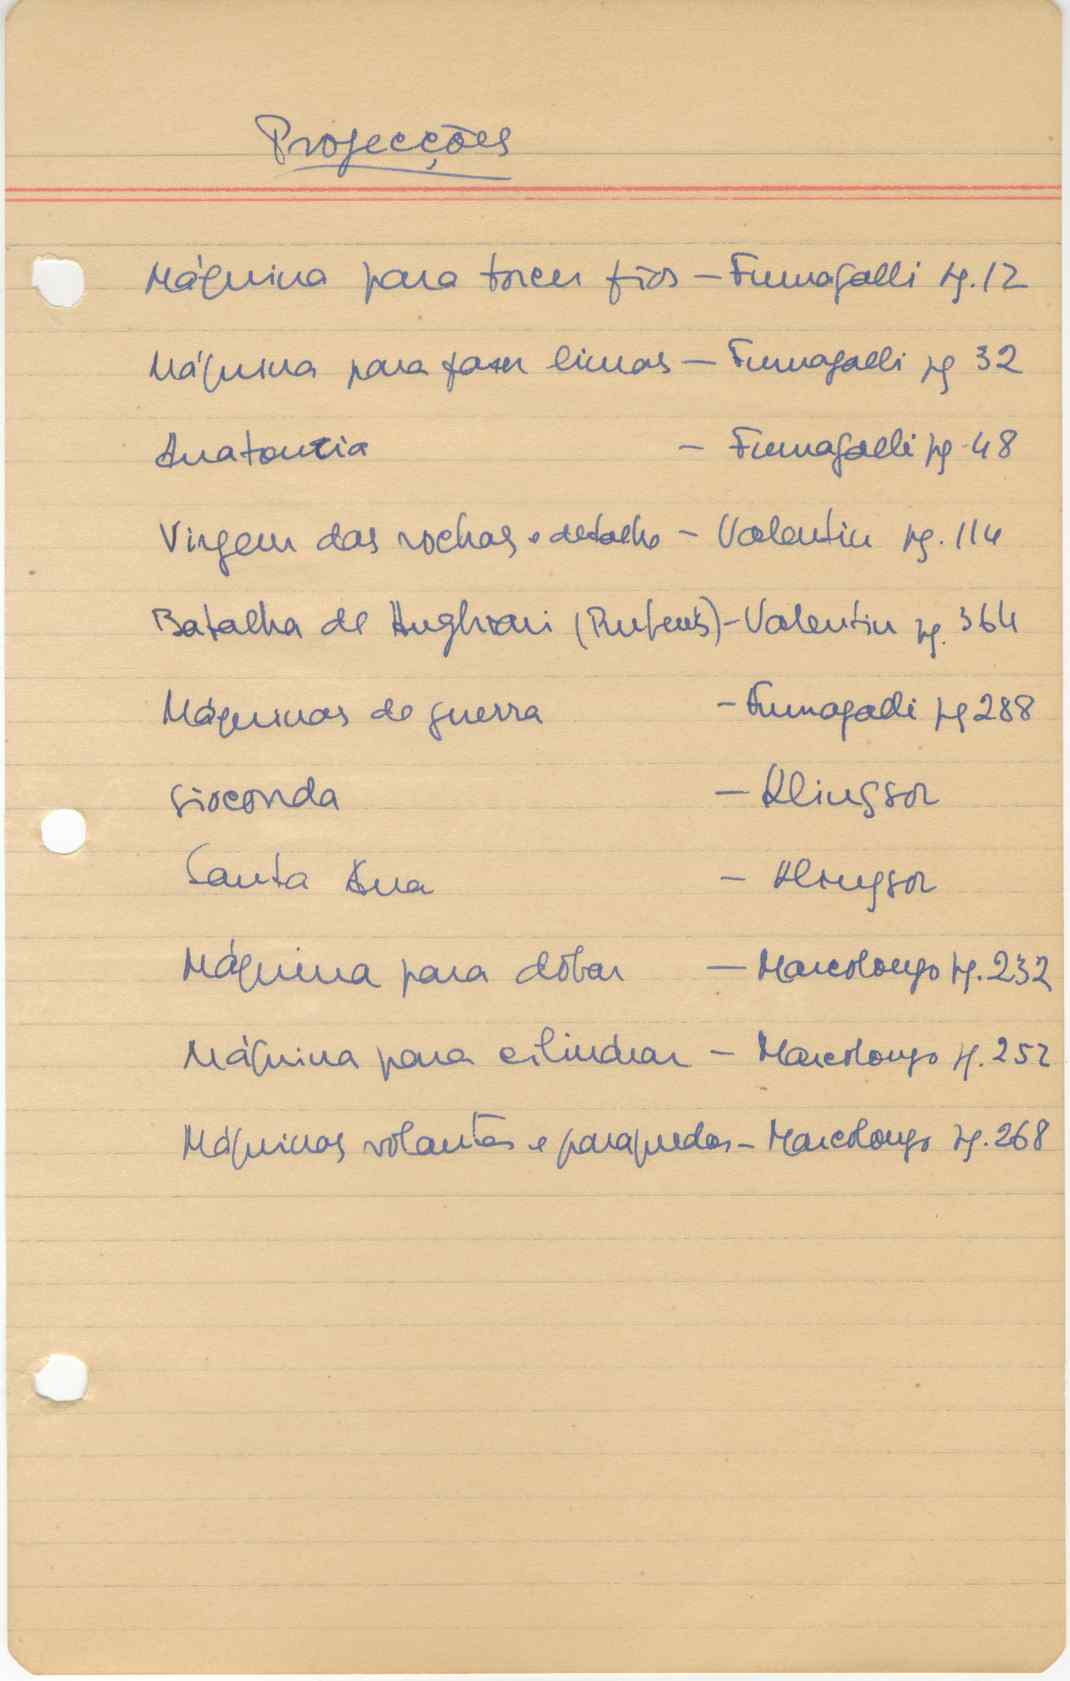 Projecções
Máquina para torcer fios – Fumagalli pg. 12
Máquina para fazer limas – Fumagalli pg 32
Anatomia – Fumagalli pg. 48
Virgem das rochas e detalhe – Valentin pg. 114
Batalha de Anghiari (Rubens) – Valentin pg. 364
Máquinas de guerra – Fumagalli pg 288
Gioconda – Klingsor
Santa Ana – Klingsor
Máquina para dobar – Marcolongo pg. 232
Máquina para cilindrar – Marcolongo pg. 252
Máquinas volantes e paraquedas – Marcolongo pg. 268